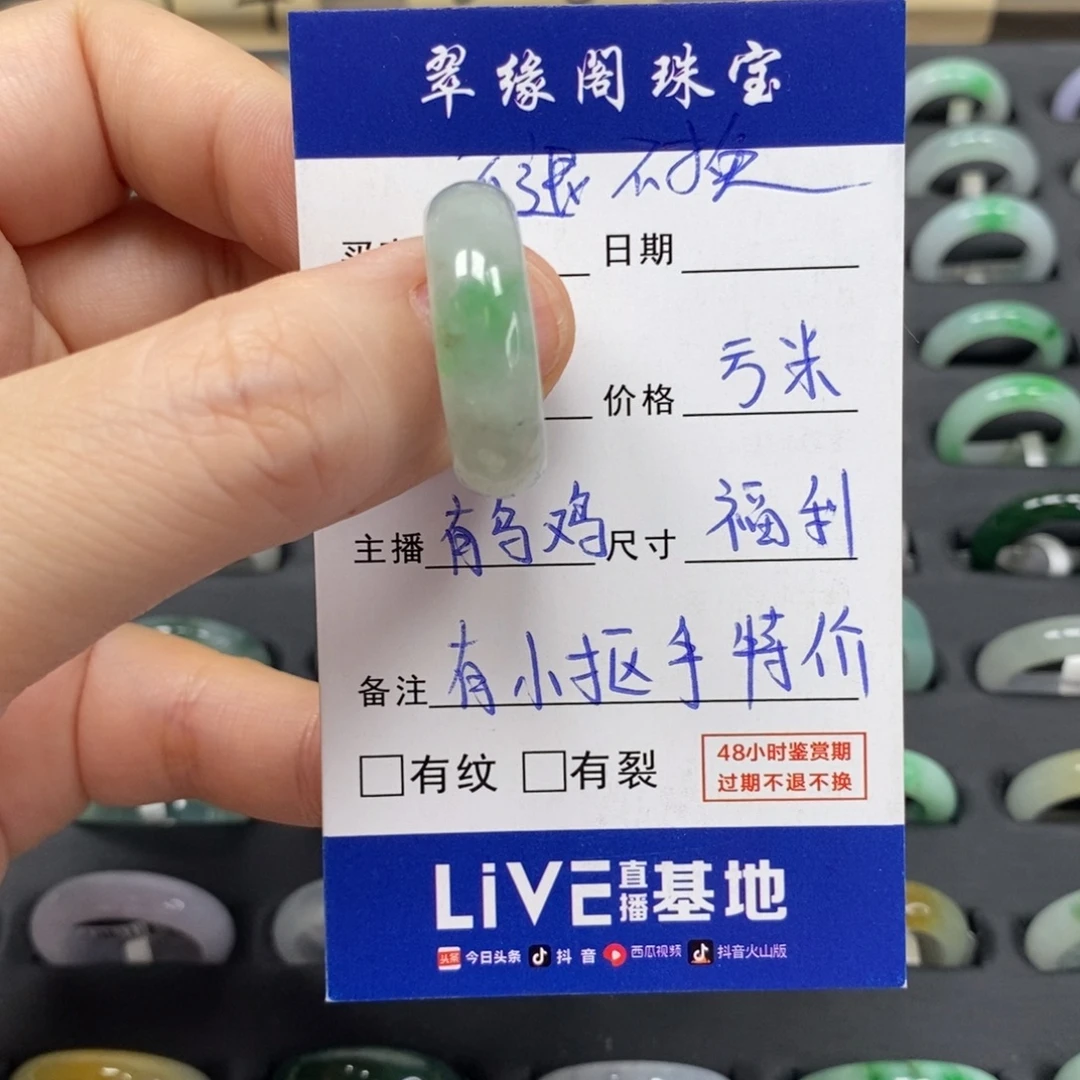 翠缘阁珠宝
不退不换
日期
价格 亏米
主播 有乌鸡 尺寸 福利
备注 有小抠手特价
□有纹 □有裂
48小时鉴赏期
过期不退不换
LiVE直播基地
头条 今日头条 抖音 西瓜视频 抖音火山版